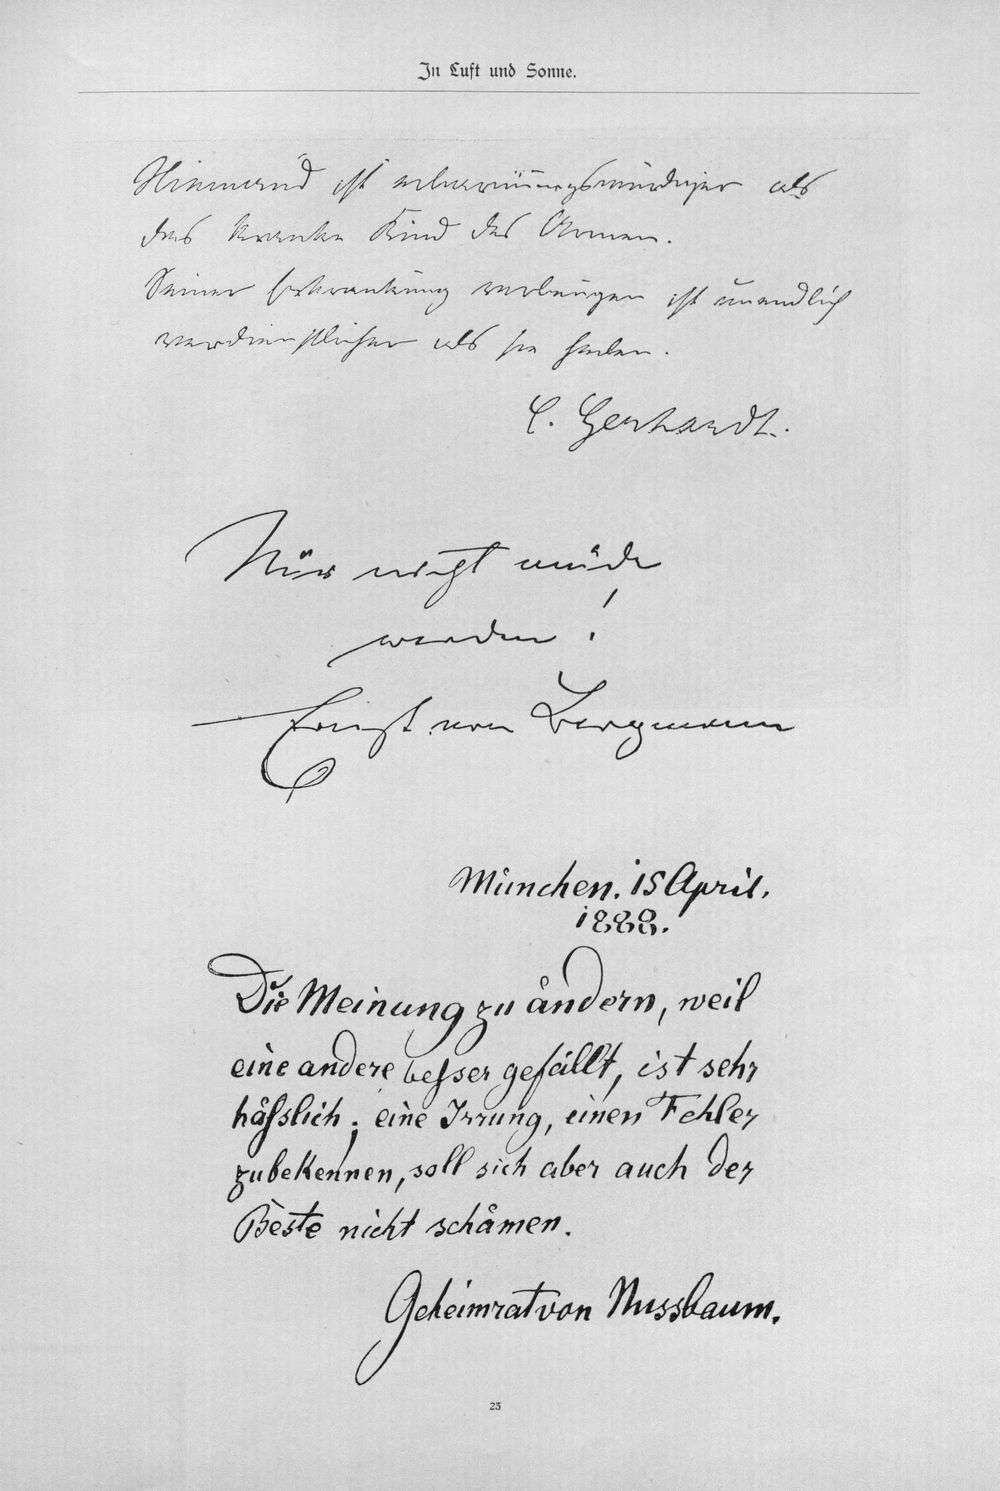 In Luft und Sonne.
Niemand ist erbarmungswürdiger als
das kranke Kind des Armen.
Seiner Erkrankung vorbeugen ist unendlich
verdienstlicher als sie heilen.
C. Gerhardt.
Nur nicht müde
werden!
Ernst von Bergmann
München. 15 April.
1888.
Die Meinung zu ändern, weil
eine andere besser gefällt, ist sehr
hässlich; eine Irrung, einen Fehler
zubekennen, soll sich aber auch der
Beste nicht schämen.
Geheimrat von Nussbaum.
23